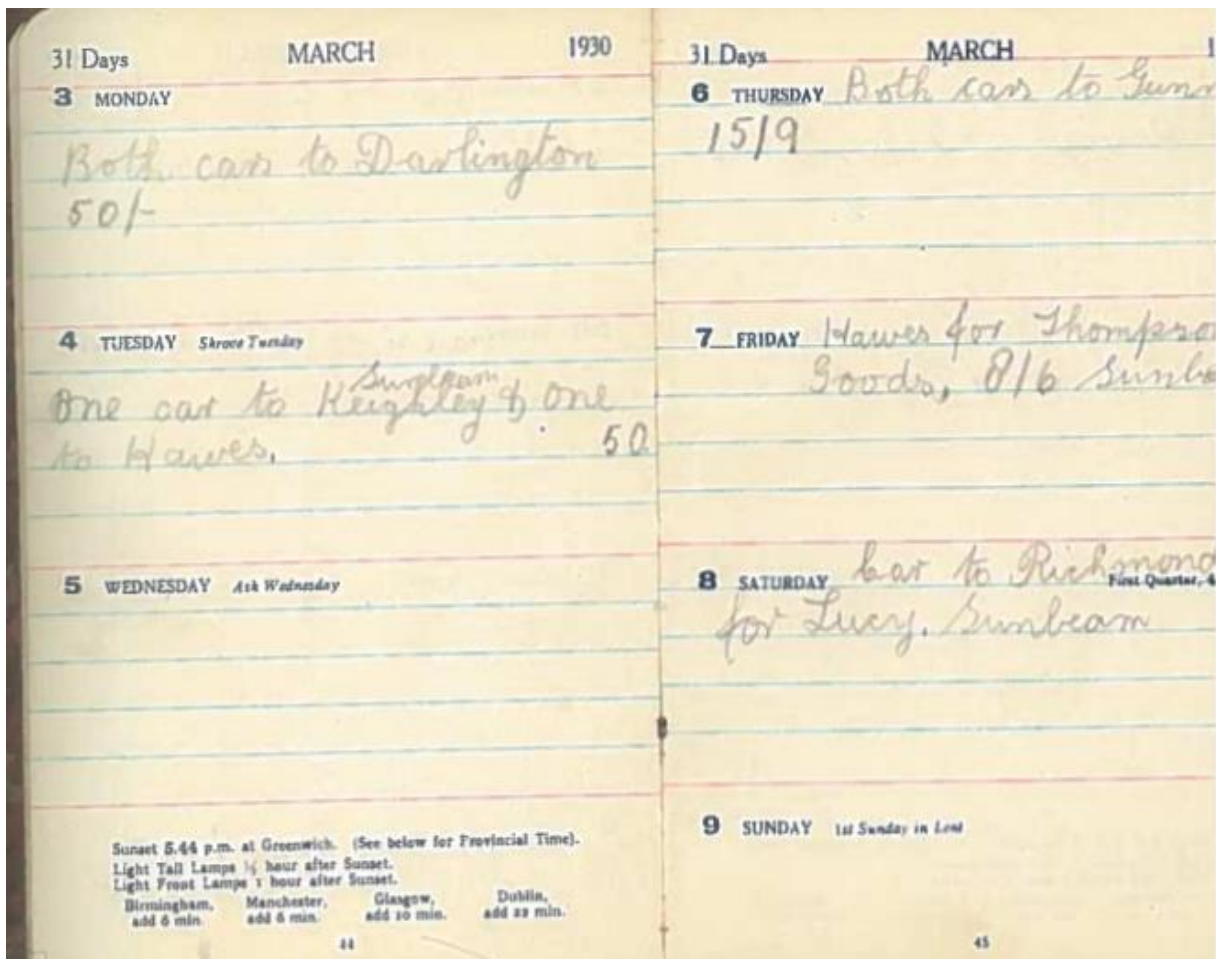 31 Days MARCH 1930
3 MONDAY
Both cars to Darlington
50/-
4 TUESDAY Shrove Tuesday
Sunbeam
One car to Keighley & one
to Hawes. 50
5 WEDNESDAY Ash Wednesday
Sunset 5.44 p.m. at Greenwich. (See below for Provincial Time).
Light Tail Lamps ½ hour after Sunset.
Light Front Lamps 1 hour after Sunset.
Birmingham, Manchester, Glasgow, Dublin,
add 6 min. add 6 min. add 10 min. add 22 min.
44
31 Days MARCH 1
6 THURSDAY Both cars to Gunn
15/9
7 FRIDAY Hawes for Thompso
Goods, 8/6 Sunbe
8 SATURDAY Car to Richmond
First Quarter, 4
for Lucy. Sunbeam
9 SUNDAY 1st Sunday in Lent
45